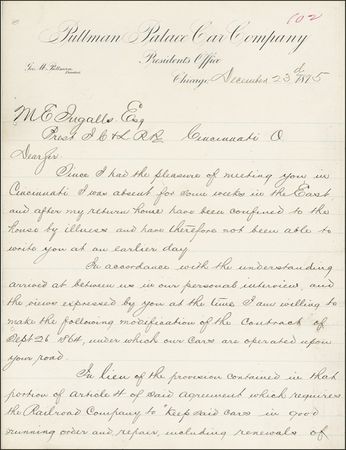 102
Pullman Palace Car Company
President's Office
Geo. M. Pullman
President
Chicago, December 23d 1875
M E Ingalls Esq
Prest I C & L RR Cincinnati O
Dear Sir
Since I had the pleasure of meeting you in
Cincinnati I was absent for some weeks in the East
and after my return house have been confined to the
house by illness and have therefore not been able to
write you at an earlier day.
In accordance with the understanding
arrived at between us in our personal interview, and
the views expressed by you at the time I am willing to
make the following modification of the Contract of
Sept 26 1864, under which our cars are operated upon
your road.
In lieu of the provision contained in that
portion of article 4 of said agreement which requires
the Railroad Company to "keep said cars in good
running order and repair, including renewals of